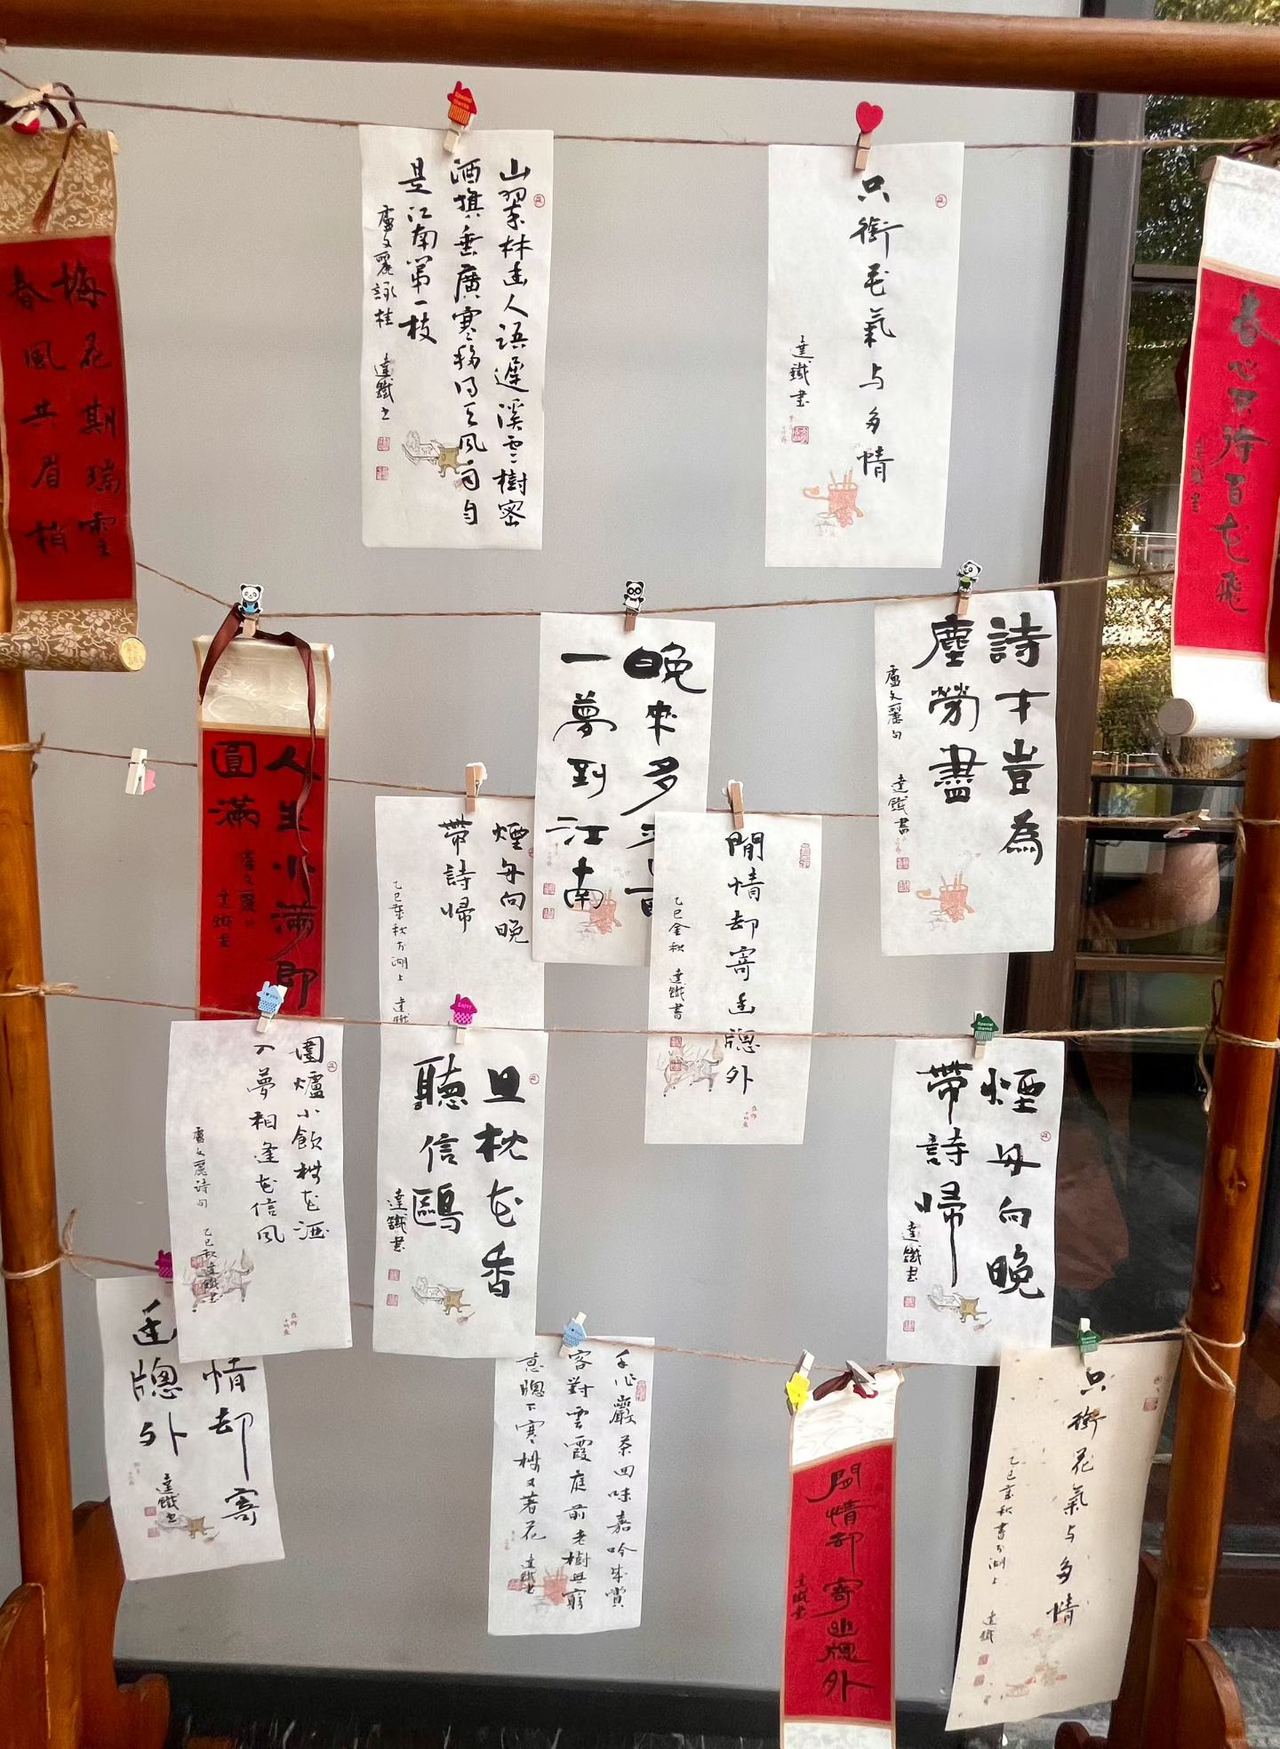 梅花期瑞雪
春風共眉梢
山翠林幽人語遲溪雲樹密
酒旗垂廣寒移得天風句自
是江南第一枝
盧文麗詠桂 達鐵书
只銜花氣与多情
達鐵書
春心不許百花飛
達鐵書
人生小滿即
圓滿
盧文麗句
達鐵書
晚來多
一夢到江南
詩才豈為
塵勞盡
盧文麗句 達鐵書
煙舟向晚
帶詩歸
乙巳葉秋于湖上 達鐵
閒情却寄幽牕外
乙巳金秋 達鐵書
圍爐小飲桃花酒
入夢相逢花信風
盧文麗詩句 乙巳秋達鐵書
且枕花香
聽信鷗
達鐵書
煙舟向晚
帶詩歸
達鐵書
情却寄
幽牕外
達鐵书
手作巖茶回味嘉吟成賞
客對雲霞庭前老樹無窮
意牕下寒梅又著花
達鐵書
閒情却寄幽牕外
達鐵書
只銜花氣与多情
乙巳金秋書于湖上 達鐵